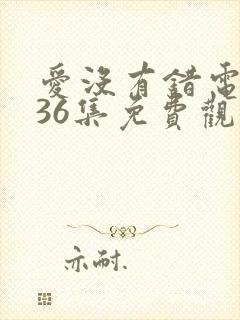 愛沒有錯電
36集免費觀
亦耐.